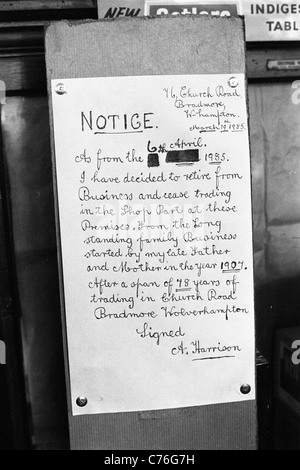 NEW Setlers
INDIGES
TABLE
76, Church Road
Bradmore,
W-hampton.
March 19th 1985.
NOTICE.
6th April.
As from the 1985.
I have decided to retire from
Business and cease trading
in the Shop Part at these
Premises. From the Long
standing family Business
started by my late Father
and Mother in the year 1907.
After a span of 78 years of
trading in Church Road
Bradmore Wolverhampton
Signed
A. Harrison
alamy
Image ID: C76G7H
www.alamy.com